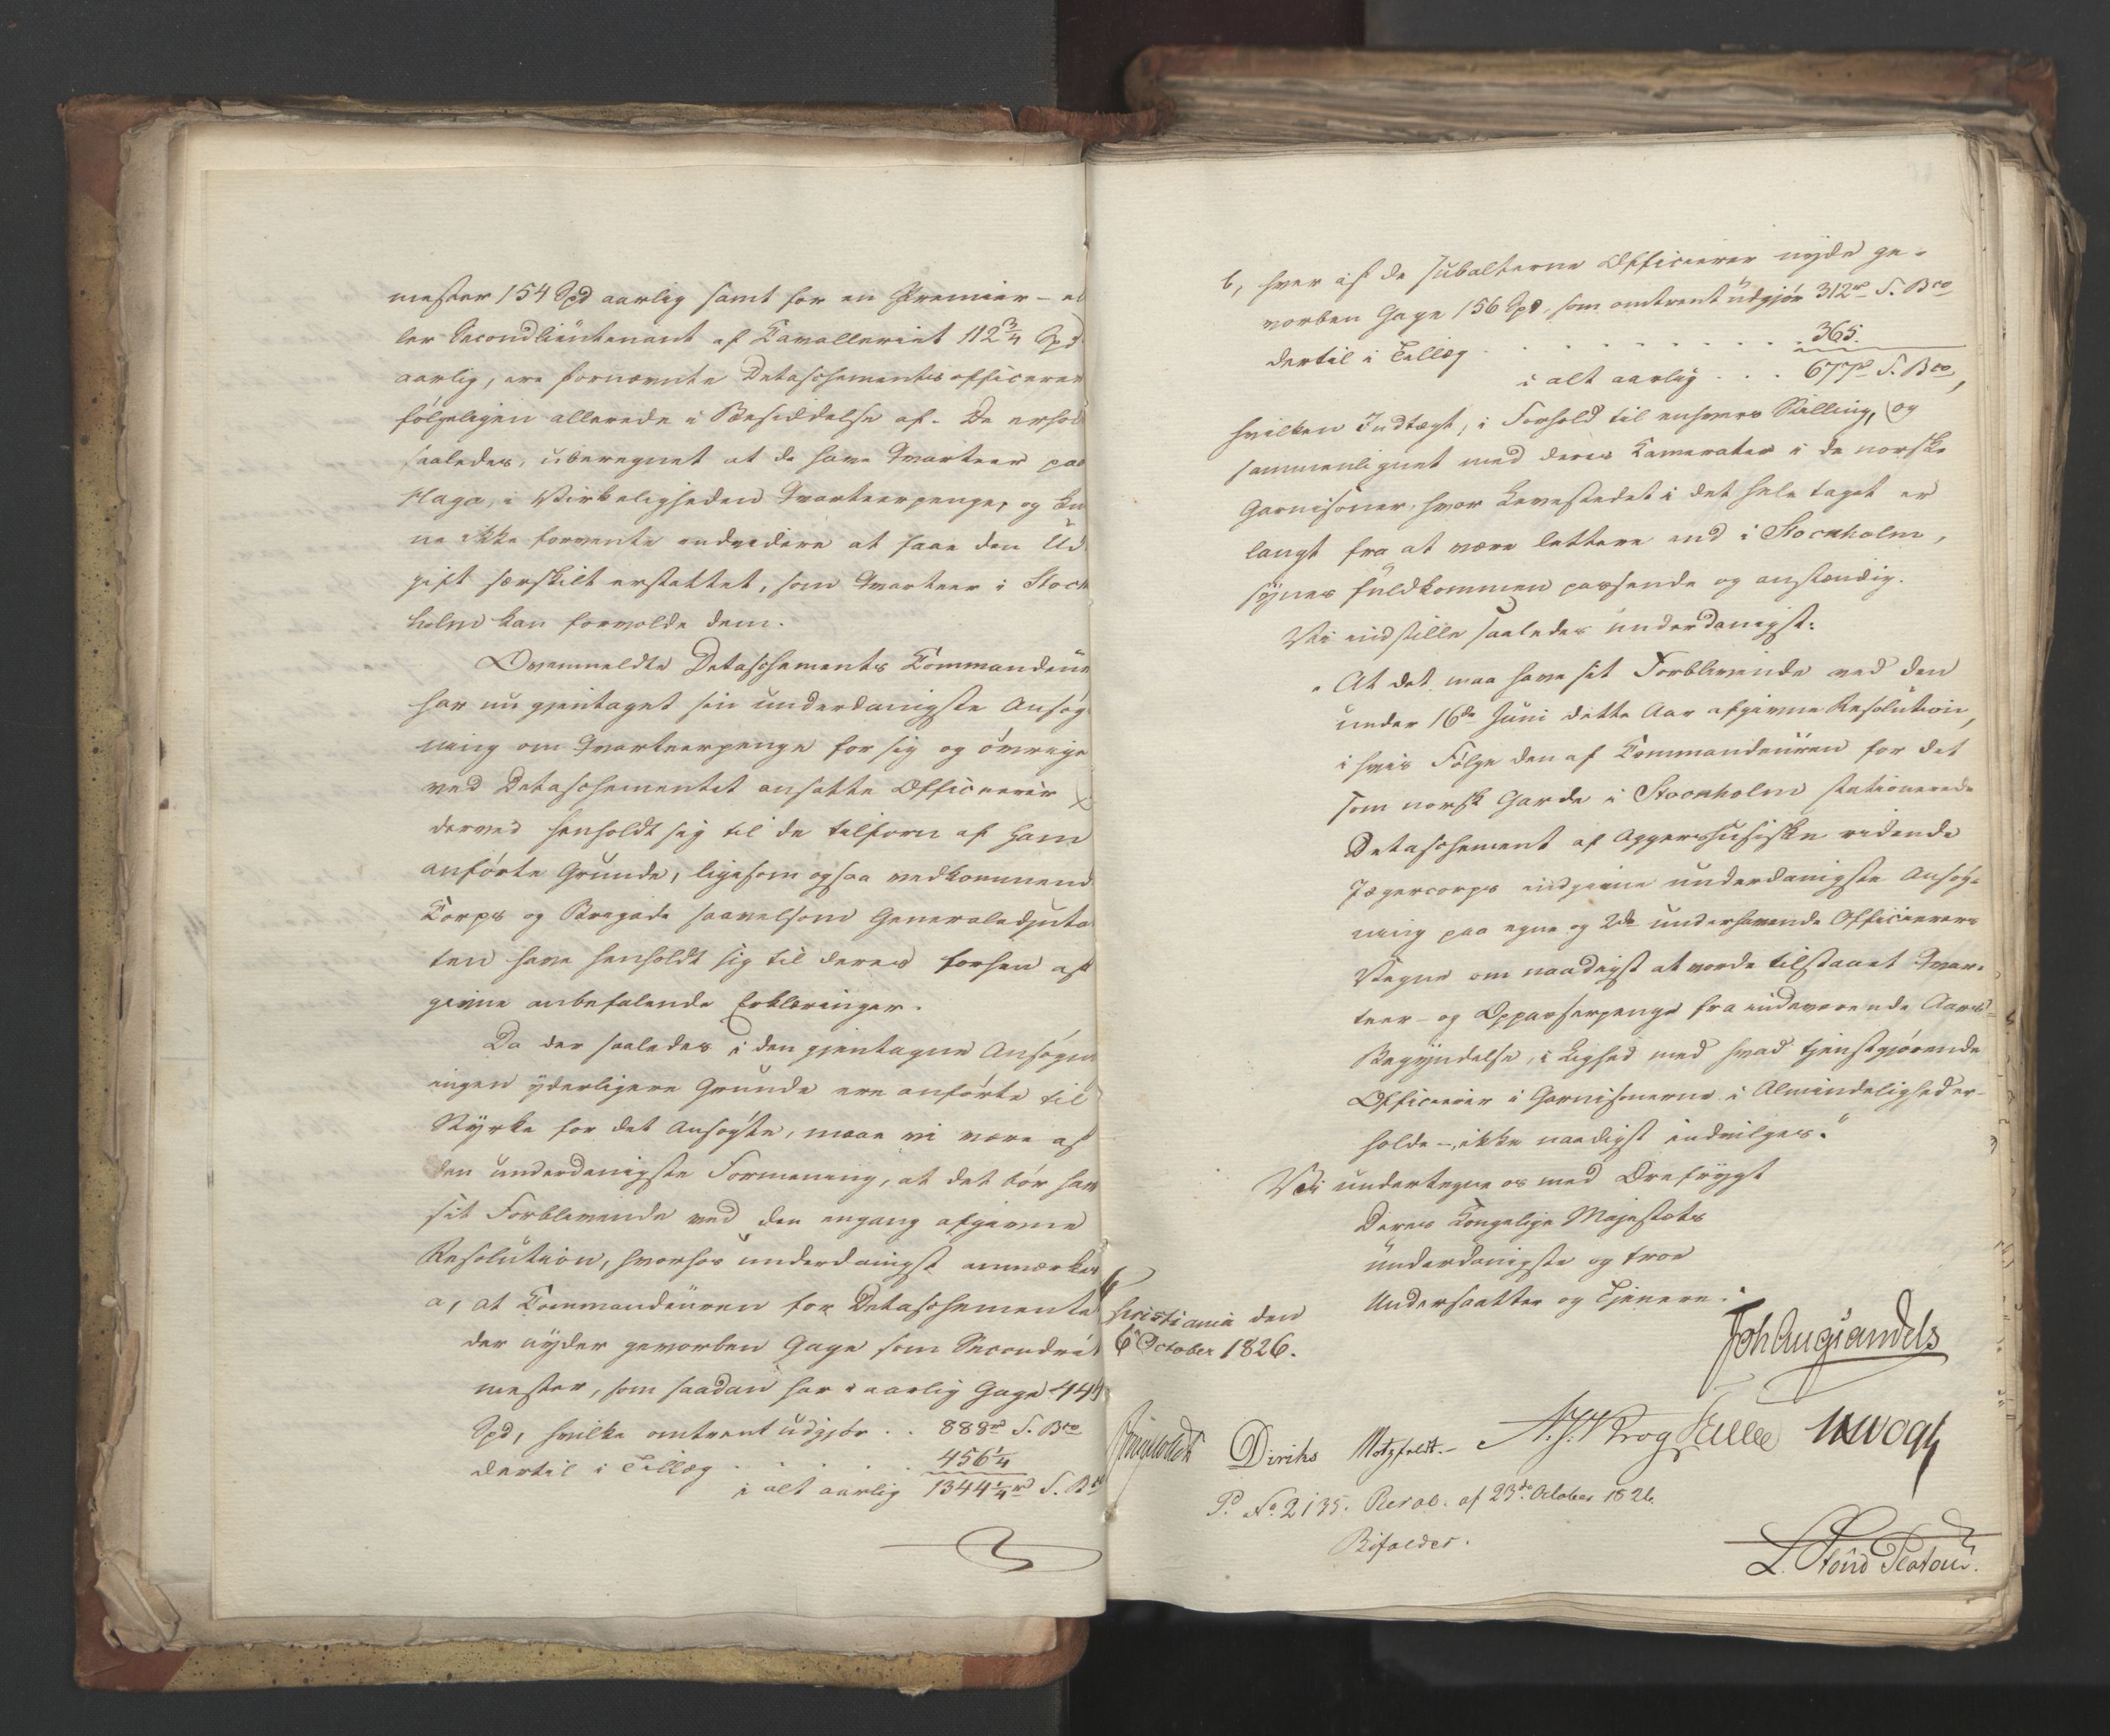 mester 154 Spd aarlig samt for en Premier- el
ler Secondlieutenant af Cavalleriet 112 3/4 Spd
aarlig, ere fornævnte Detaschements officerer
følgeligen allerede i Besiddelse af. De erhol
saaledes, uberegnet at de have Qvarteer paa
Haga, i Virkeligheden Qvarteerpenge, og kun
ne ikke formente endvidere at faae den Ud
gift særskilt erstattet, som Qvarteer i Stock
holm kan forvolde dem.
Ovenmeldte Detaschements Commandeur
har nu gjentaget sin underdanigste Ansøg
ning om Qvarteerpenge for sig og øvrige
ved Detaschementet ansatte Officerer
derved henholdt sig til de tilforn af ham
anførte Grunde, ligesom ogsaa vedkommend
Corps og Brigade saavelsom Generaladjuta
ten have henholdt sig til deres forhen af
givne anbefalende Erklæringer.
Da der saaledes i den gjentagne Ansøgn
ingen yderligere Grunde ere anførte til
Styrke for det Ansøgte, maae vi være af
den underdanigste Formening, at det bør have
sit Forblivende ved den engang afgivne
Resolution, hvorhos underdanigst anmærkes
a, at Commandeuren for Detaschemente
der nyder gevorben Gage som Secondrit
mester, som saadan har i aarlig Gage 444
Spd, hvilke omtrent udgjør . . 888rd S. Bco
dertil i Tillæg . . . . . 456 1/4
i alt aarlig 1344 1/4 rd S. Bco
b, hver af de subalterne Officierer nyde ge-
vorben Gage 156 Spd, som omtrent udgjør 312rd S. Bco
dertil i Tillæg . . . . . . . . . 365.
i alt aarlig . . . 677rd S. Bco,
hvilken Indtægt, i Forhold til enhvers Stilling, og
sammenlignet med deres Camerater i de norske
Garnisoner, hvor Levestedet i det hele taget er
langt fra at være lettere end i Stockholm,
synes fuldkommen passende og anstændig.
Vi indstille saaledes underdanigst:
"At det maa have sit Forblivende ved den
under 16de Juni dette Aar afgivne Resolution,
i hvis Følge den af Commandeuren for det
som norsk Garde i Stockholm stationerede
Detaschement af Aggershusiske ridende
Jægercorps indgivne underdanigste Ansøg-
ning paa egne og 2de underhavende Officierers
Vegne om naadigst at vorde tilstaaet Qvar-
teer- og Oppasserpenge fra indeværende Aars
Begyndelse, i Lighed med hvad tjenstgjørende
Officierer i Garnisonerne i Almindelighed er-
holde -, ikke naadigst indvilges."
Vi undertegne os med Ærefrygt
Deres Kongelige Majestæts
underdanigste og troe
Undersaatter og Tjenere.
Christiania den
6 October 1826.
Joh Aug Sandels
Diriks Motzfeldt.- N. J. Krog Collett
P. No 2135. Resol. af 23de October 1826.
Bifaldes.